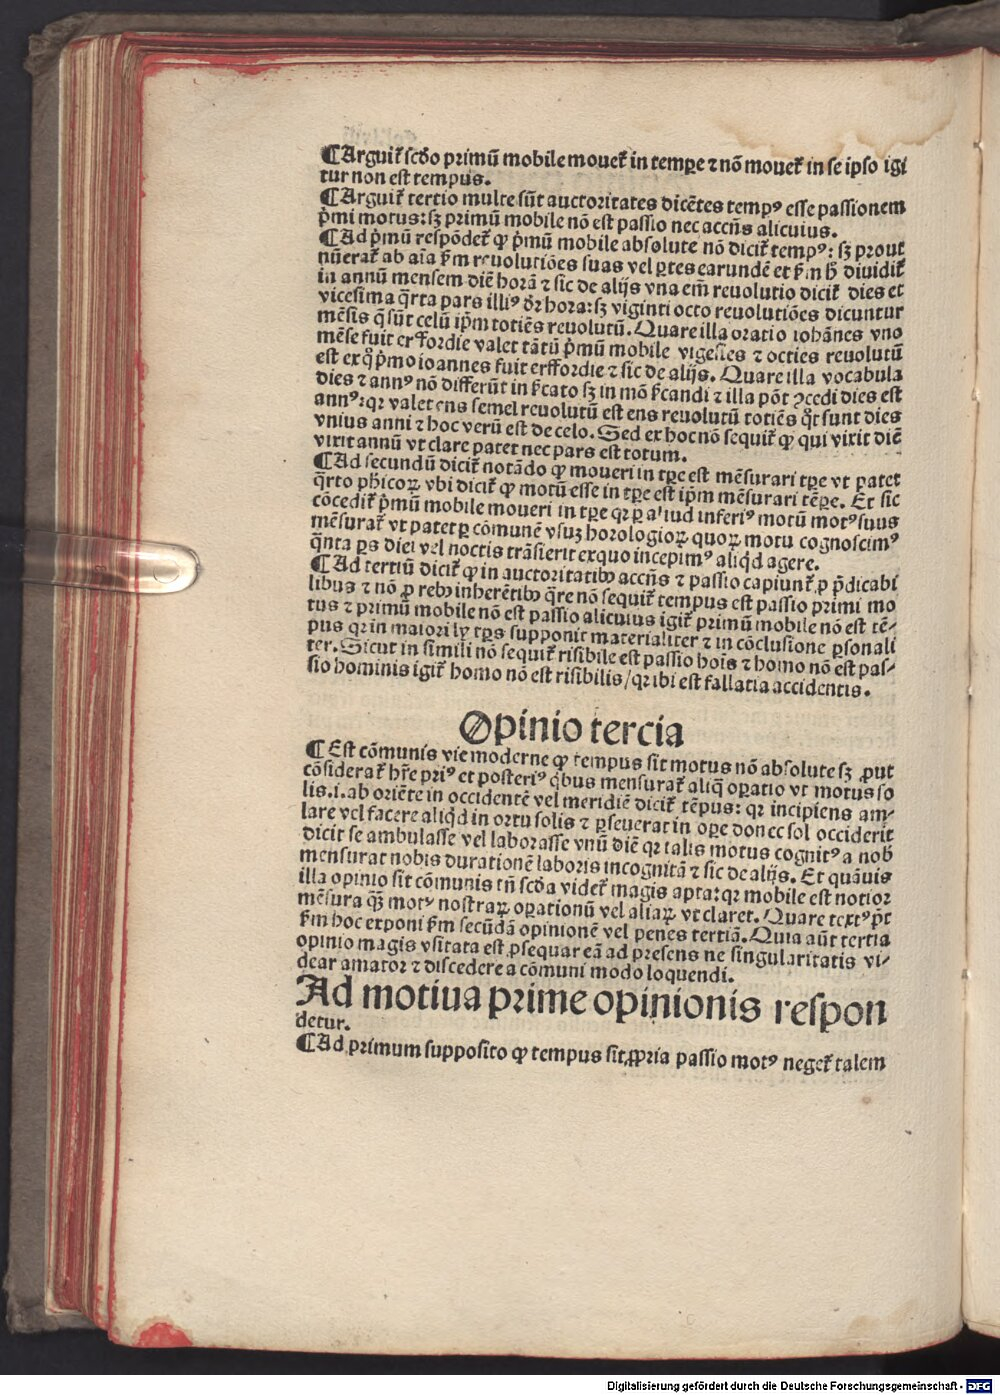 ¶Arguit᷑ scḋo primū mobile mouet᷑ in temꝑe ⁊ nō mouet᷑ in se ipso igi
tur non est tempus.
¶Arguit᷑ tertio multe sūt auctoritates dicētes tempꝰ esse passionem
p̄mi motus: sꝫ primū mobile nō est passio nec accn̄s alicuius.
¶Ad p̄mū respōdet᷑ ꝙ p̄mū mobile absolute nō dicit᷑ tempꝰ: sꝫ prout
nūerat᷑ ab aīa ẜm reuolutiōes suas vel ꝑtes earundē et ẜm h̄ diuidit᷑
in annū mensem diē horā ⁊ sic de alijs vna em̄ reuolutio dicit᷑ dies et
vicesima q̄rta pars illiꝰ dr̄ hora: sꝫ viginti octo reuolutiōes dicuntur
mēsis q̄ sūt celū ip̄m totiēs reuolutū. Quare illa oratio iohānes vno
mēse fuit erffordie valet tātū p̄mū mobile vigesies ⁊ octies reuolutū
est ex qͦ p̄mo ioannes fuit erffordie ⁊ sic de alijs. Quare illa vocabula
dies ⁊ annꝰ nō differūt in ẜcato sꝫ in mō ẜcandi ⁊ illa pōt ꝯcedi dies est
annꝰ: qꝛ valet ens semel reuolutū est ens reuolutū totiēs qͦt sunt dies
vnius anni ⁊ hoc verū est de celo. Sed ex hoc nō sequit᷑ ꝙ qui vixit diē
vixit annū vt clare patet nec pars est totum.
¶Ad secundū dicit᷑ notādo ꝙ moueri in tꝑe est mēsurari tꝑe vt patet
q̄rto ph̄icoꝝ vbi dicit᷑ ꝙ motū esse in tꝑe est ip̄m mēsurari tēꝑe. Et sic
cōcedit᷑ p̄mū mobile moueri in tꝑe qꝛ ꝑ aliud inferiꝰ motū motꝰ suus
mēsurat᷑ vt patet ꝑ cōmunē vsuꝫ horologioꝝ quoꝝ motu cognoscimꝰ
q̄nta ꝑs diei vel noctis trāsierit exquo incepimꝰ aliqͥd agere.
¶Ad tertiū dicit᷑ ꝙ in auctoritatibꝫ accn̄s ⁊ passio capiunt᷑ ꝓ p̄dicabi
libus ⁊ nō ꝓ rebꝫ inherētibꝫ q̄re nō sequit᷑ tempus est passio primi mo
tus ⁊ primū mobile nō est passio alicuius igit᷑ primū mobile nō est tē-
pus qꝛ in maiori ly tꝑs supponit materialiter ⁊ in cōclusione ꝑsonali
ter. Sicut in simili nō sequit᷑ risibile est passio hoīs ⁊ homo nō est pas-
sio hominis igit᷑ homo nō est risibilis/ qꝛ ibi est fallatia accidentis.
Opinio tercia
¶Est cōmunis vie moderne ꝙ tempus sit motus nō absolute sꝫ ꝓut
cōsiderat᷑ hr̄e priꝰ et posteriꝰ qͥbus mensurat᷑ aliq̄ oꝑatio vt motus so
lis .i. ab oriēte in occidentē vel meridiē dicit᷑ tēpus: qꝛ incipiens am-
lare vel facere aliqͥd in ortu solis ⁊ ꝑseuerat in oꝑe donec sol occiderit
dicit se ambulasse vel laborasse vnū diē qꝛ talis motus cognitꝰ a nob̄
mensurat nobis durationē laboris incognitā ⁊ sic de alijs. Et quāuis
illa opinio sit cōmunis tn̄ scḋa videt᷑ magis apta: qꝛ mobile est notior
mēsura qꝫ̄ motꝰ nostraꝝ oꝑationū vel aliaꝝ vt claret. Quare textꝰ p̄t
ẜm hoc exponi ẜm secūdā opinionē vel penes tertiā. Quia aūt tertia
opinio magis vsitata est ꝓsequar eā ad presens ne singularitatis vi-
dear amator ⁊ discedere a cōmuni modo loquendi.
Ad motiua prime opinionis respon
detur.
¶Ad primum supposito ꝙ tempus sit ꝓpria passio motꝰ neget᷑ talem
Digitalisierung gefördert durch die Deutsche Forschungsgemeinschaft - DFG